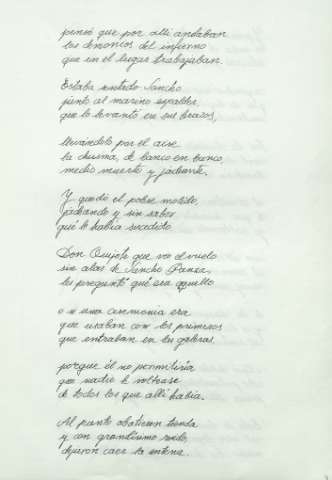 pensó que por allí andaban
los demonios del infierno
que en el lugar trabajaban.
Estaba sentado Sancho
junto al marino espalder,
que lo levantó en sus brazos,
llevándolo por el aire
la chusma, de banco en banco,
medio muerto y jadeante.
Y quedó el pobre molido,
jadeando y sin saber
qué le había sucedido.
Don Quijote que vio el vuelo
sin alas de Sancho Panza,
les preguntó qué era aquello
o si una ceremonia era
que usaban con los primeros
que entraban en las galeras.
porque él no permitiría
que nadie le voltease
de todos los que allí había.
Al punto abatieron tienda
y con grandísimo ruido,
dejaron caer la entena.